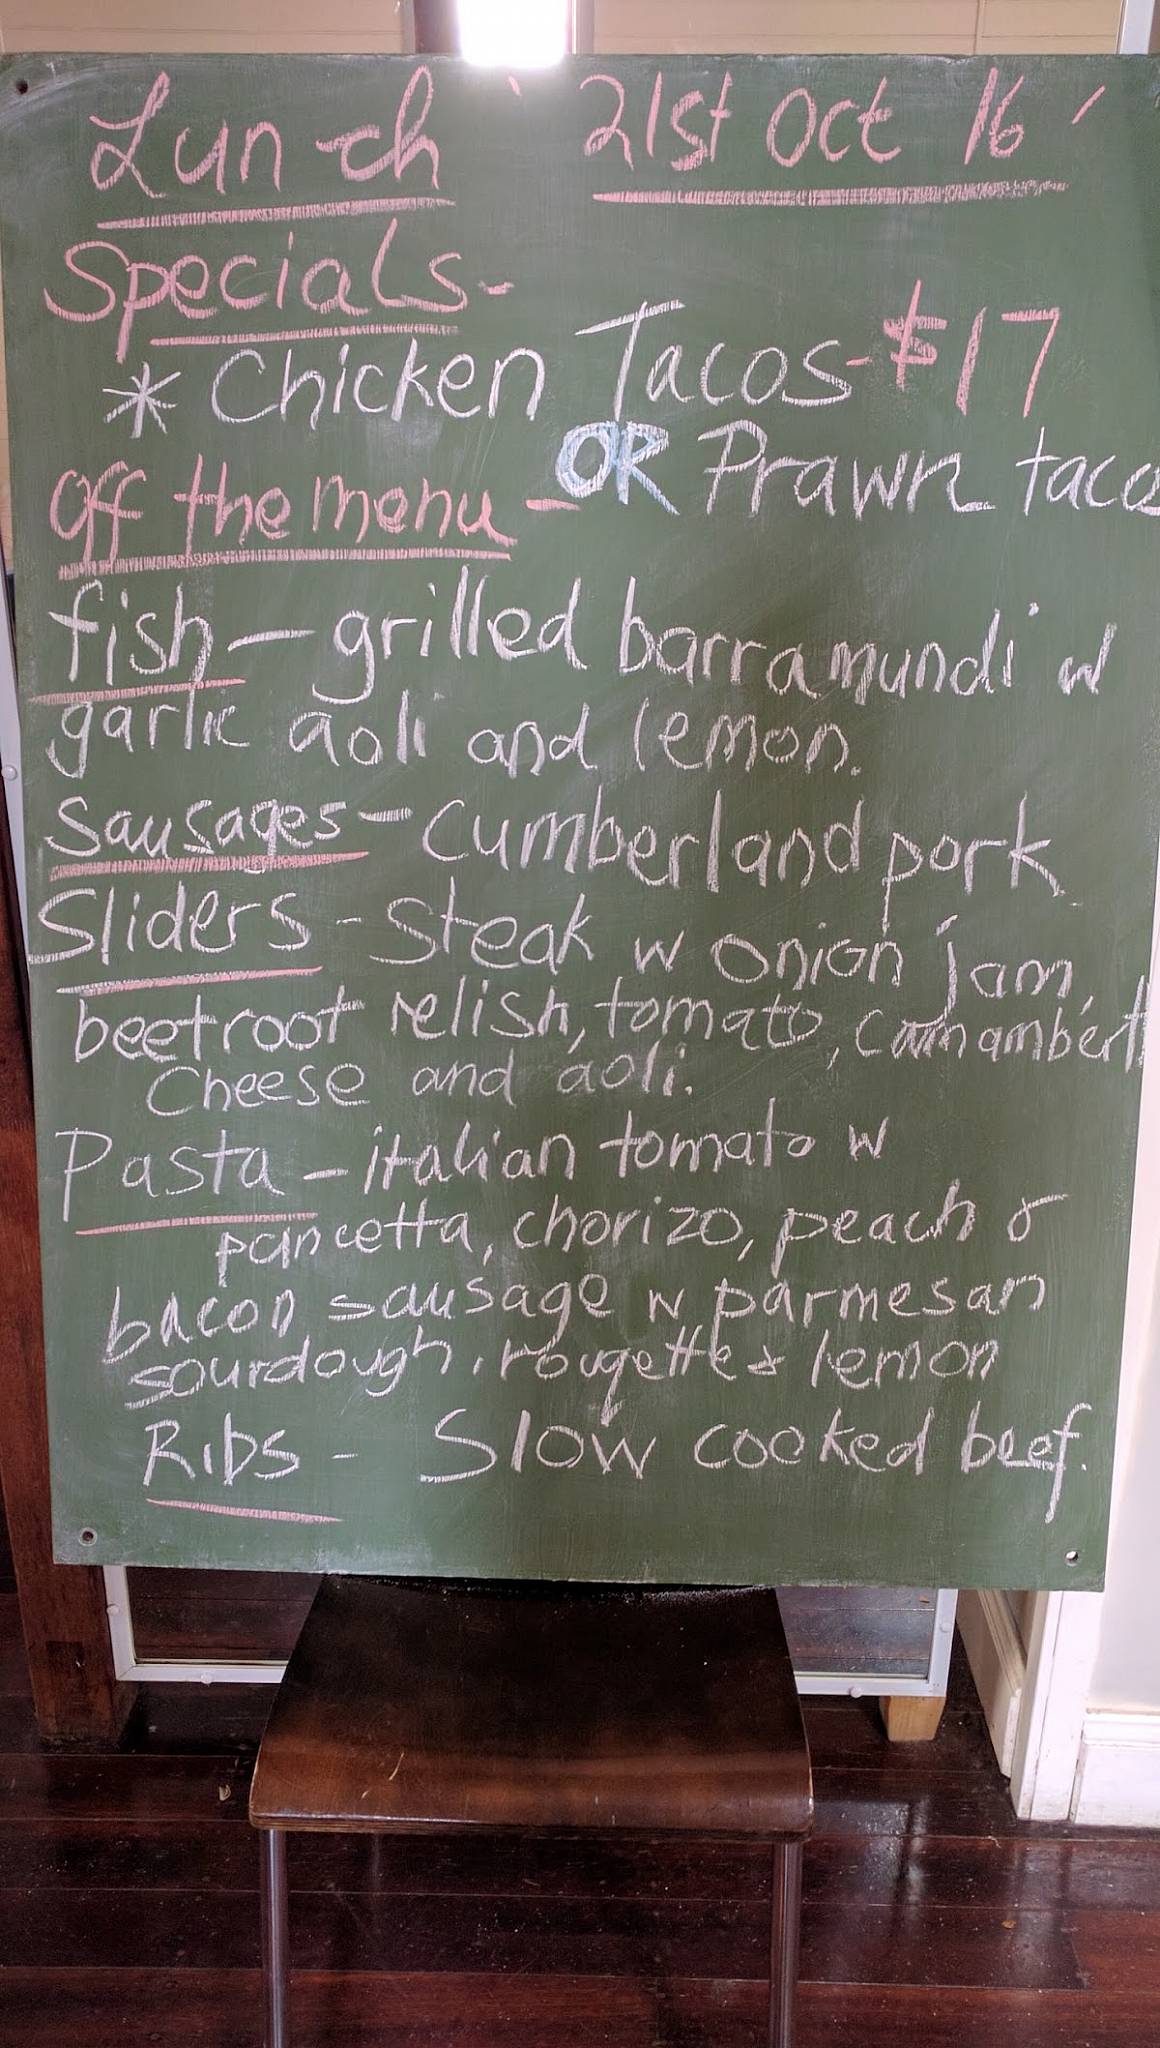 Lunch ' 21st Oct 16 '
Specials-
* Chicken Tacos-$17
OR Prawn taco
off the menu -
fish - grilled barramundi w
garlic aoli and lemon.
Sausages - Cumberland pork
Sliders - Steak w onion jam,
beetroot relish, tomato, camambert
Cheese and aoli.
Pasta - italian tomato w
pancetta, chorizo, peach &
bacon sausage w parmesan
sourdough, rougette & lemon
Ribs - Slow cooked beef.